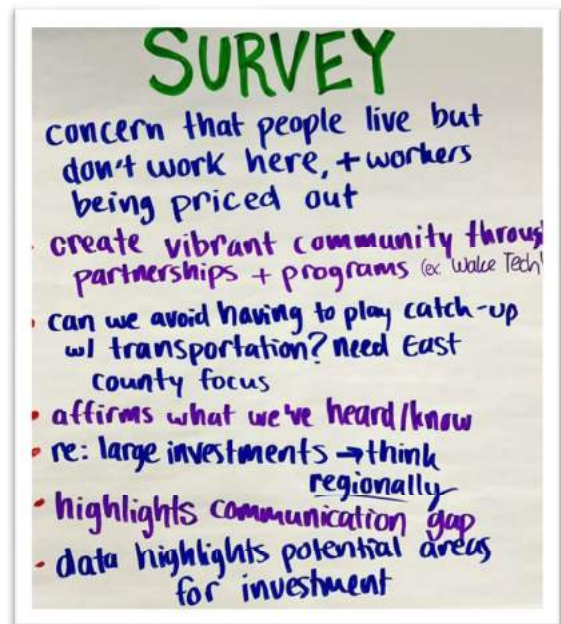 SURVEY
concern that people live but
don't work here, + workers
being priced out
• create vibrant community throug
partnerships + programs (ex Wake Tech
• can we avoid having to play catch-up
w/ transportation? need East
county focus
• affirms what we've heard/know
• re: large investments → think
regionally
• highlights communication gap
• data highlights potential areas
for investment